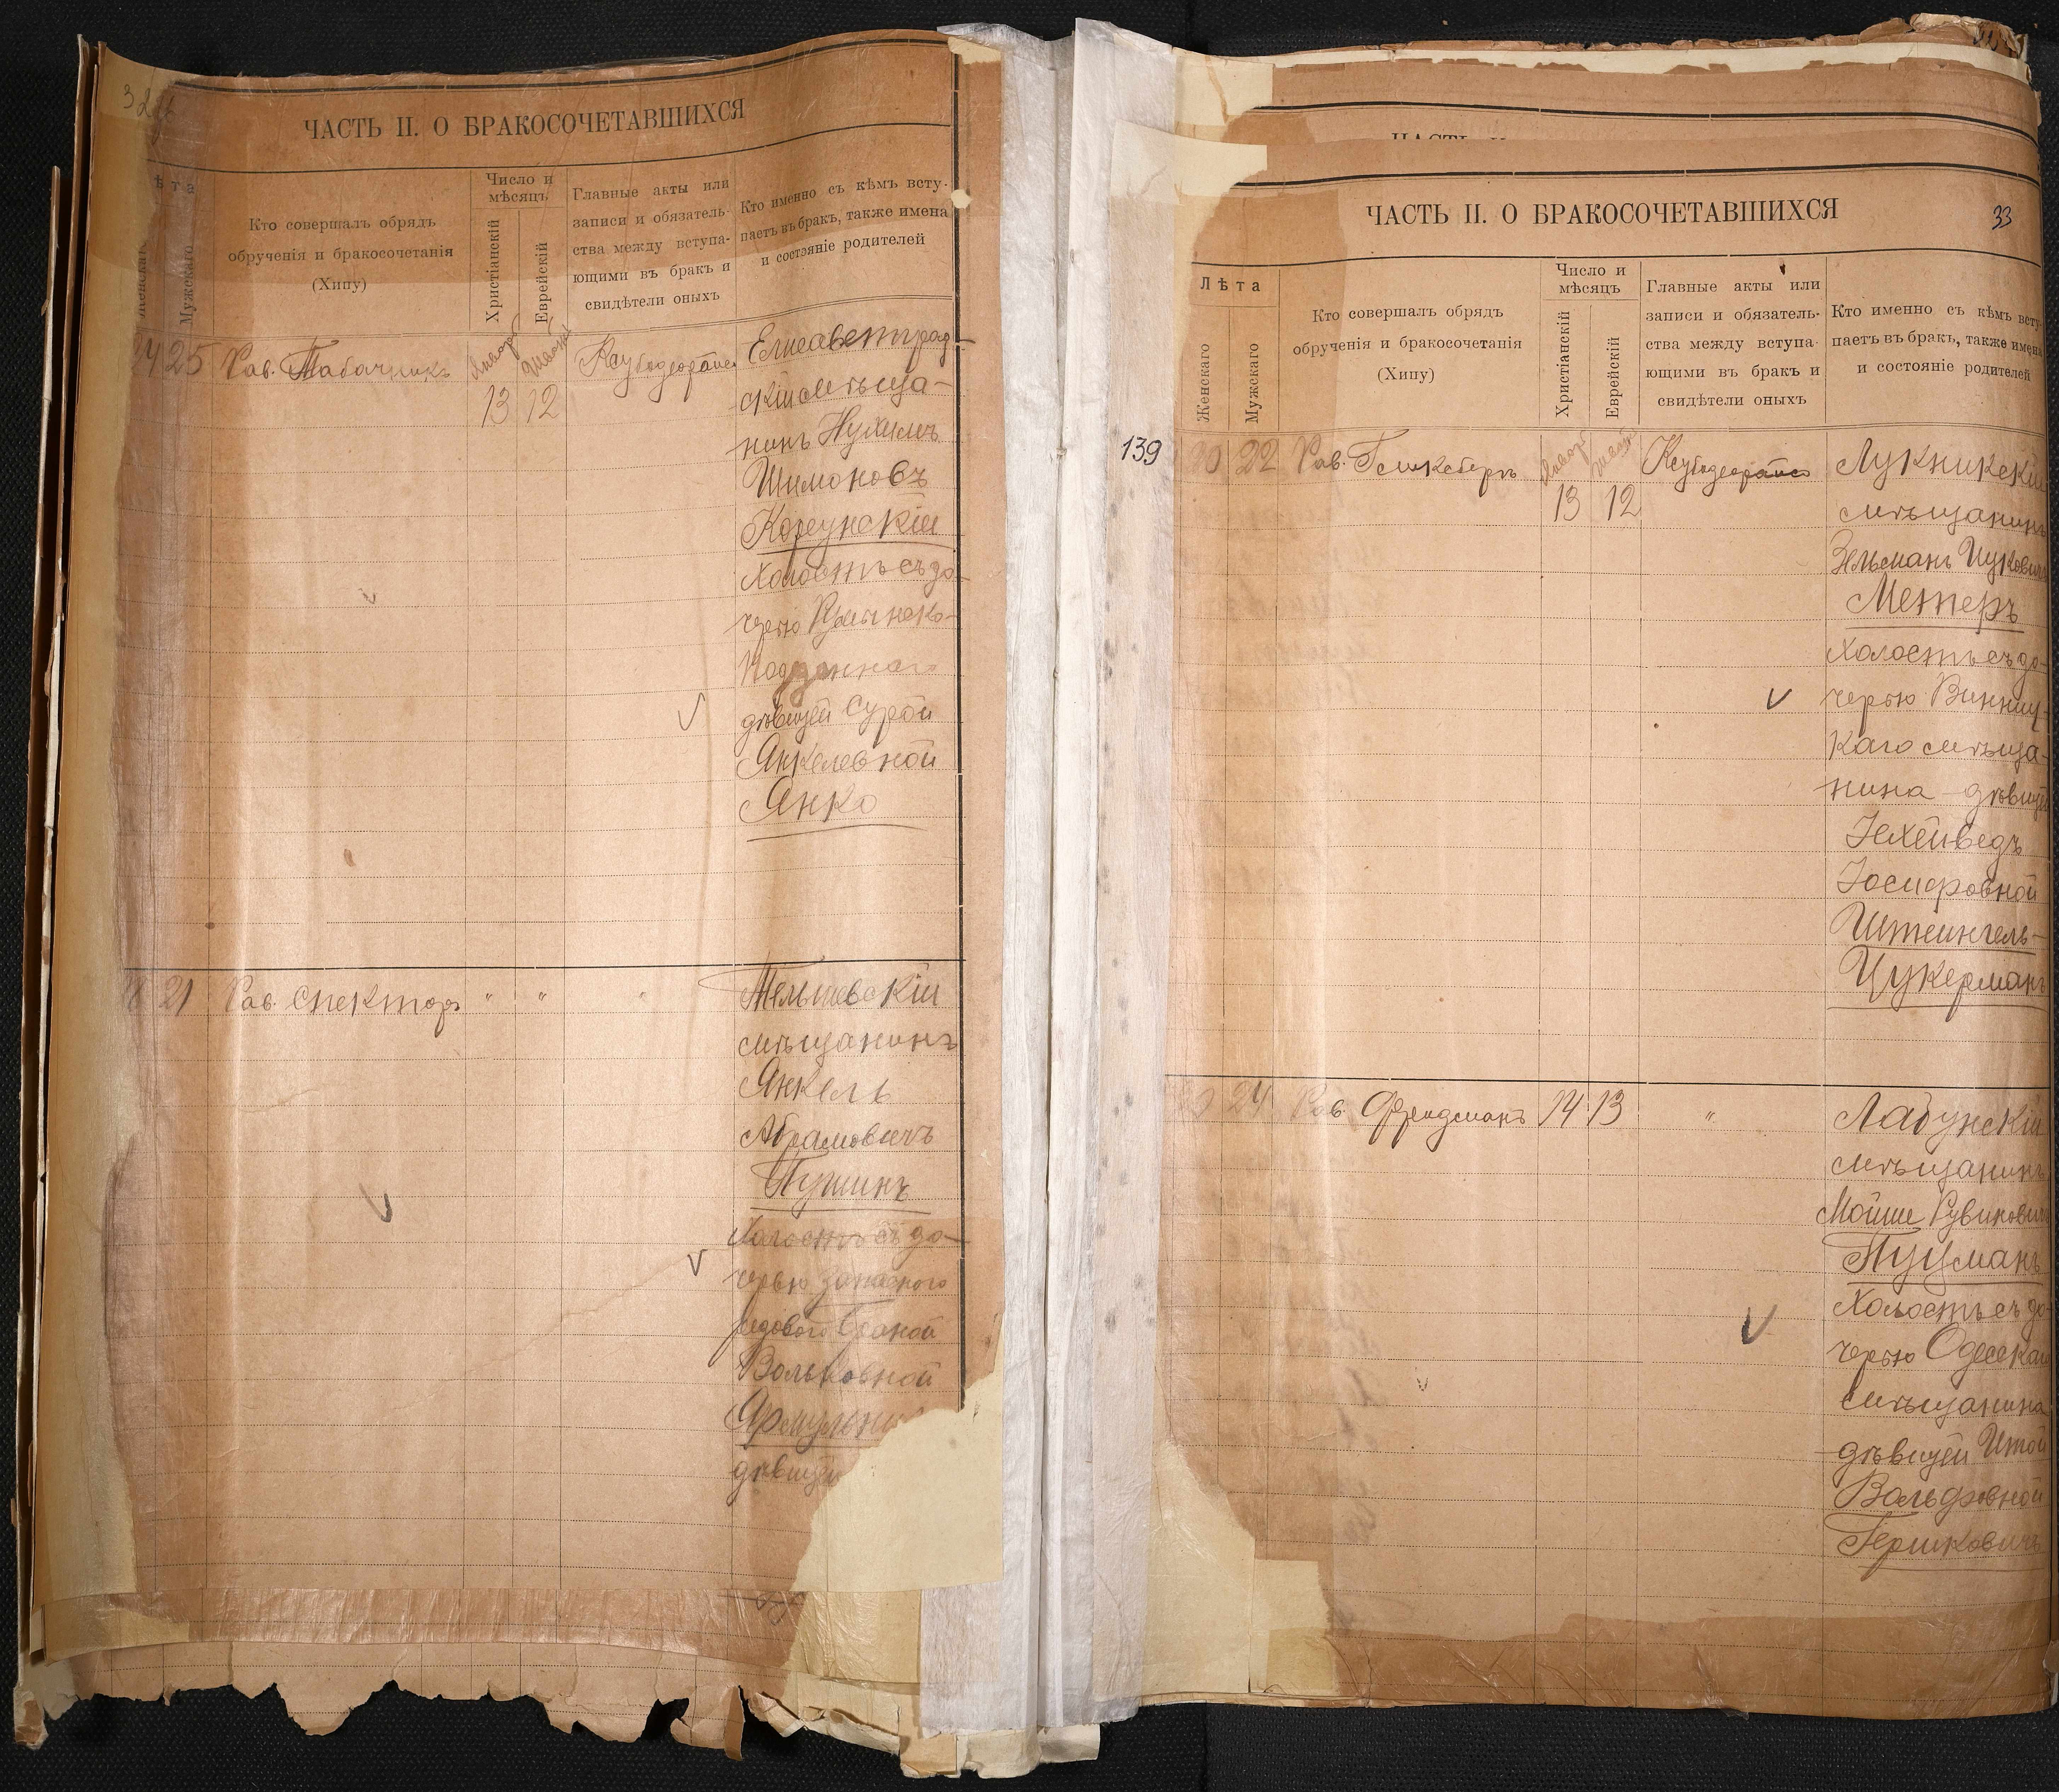 ЧАСТЬ II. О БРАКОСОЧЕТАВШИХСЯ
ѣта
Мужскаго
Кто совершалъ обрядъ
обрученія и бракосочетанія
(Хипу)
Число и
мѣсяцъ
Христіанскій
Еврейскій
Главные акты или
записи и обязатель-
ства между вступа-
ющими въ бракъ и
свидѣтели оныхъ
Кто именно съ кѣмъ всту-
паетъ въ бракъ, также имена
и состояніе родителей
24 25 Рав. Табачникъ
13 12
Елисаветград-
скій мѣща-
нинъ Нухимъ
Шимоновъ
Корсунскій
Холостъ съ до-
черью
дѣвицей Сурой
Янкелевной
Янко
21 Рав. Спекторъ " " "
Тельшевскій
мѣщанинъ
Янкель
Абрамовичъ
Пушинъ
Холостъ съ до-
черью запасного
рядового
Вольковной
дѣвицей
ЧАСТЬ II. О БРАКОСОЧЕТАВШИХСЯ
33
Лѣта
Женскаго
Мужскаго
Кто совершалъ обрядъ
обрученія и бракосочетанія
(Хипу)
Число и
мѣсяцъ
Христіанскій
Еврейскій
Главные акты или
записи и обязатель-
ства между вступа-
ющими въ бракъ и
свидѣтели оныхъ
Кто именно съ кѣмъ всту-
паетъ въ бракъ, также имена
и состояніе родителей
139 20 22 Рав. Гликсбергъ
13 12
Лукникскій
мѣщанинъ
Зельманъ Ицковичъ
Метеръ
Холостъ съ до-
черью Винниц-
каго мѣща-
нина дѣвицей
Іохейведъ
Іосифовной
Штеингель-
Цукерманъ
24 Рав. Фридманъ 14 13 "
Лабунскій
мѣщанинъ
Мойше Рувиновичъ
Гуцманъ
Холостъ съ до-
черью Одесскаго
мѣщанина
дѣвицей Итой
Вольфовной
Гершковичъ